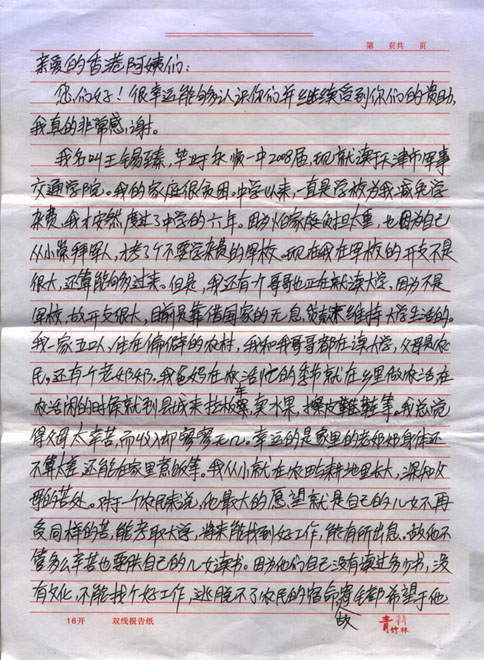 第 页共 页
亲爱的香港阿姨们：
您们好！很幸运能够认识你们并继续受到你们的资助，
我真的非常感谢。
我名叫王锡臻，毕于永顺一中2008届，现就读于天津市军事
交通学院。我的家庭很贫困。中学以来，一直是学校为我减免学
杂费，我才安然度过了中学的六年。因为怕家庭负担太重，也因为自己
从小崇拜军人，才考了个不要学杂费的军校。现在我在军校的开支不是
很大，还算能够过来。但是，我还有个哥哥也正在就读大学，因为不是
军校，故开支很大，目前是靠借国家的无息贷款来维持大学生活的。
我一家五口人，住在偏僻的农村，我和我哥哥都在读大学，父母是农
民。还有个老奶奶。我爸妈在农活忙的季节就在乡里做农活在
农活闲的时候就到县城来拉板车，卖水果，擦皮鞋等。我总觉
得父母太辛苦，而收入却寥寥无几。幸运的是家里的老奶奶身体还
不算太差，还能在家里煮饭等。我从小就在农田耕地里长大，深知父
母的苦处。对于个农民来说，他最大的愿望就是自己的儿女不再
受同样的苦，能考取大学，将来能找到好工作，能有所出息。故他不
管多么辛苦也要供自己的儿女读书。因为他们自己没有读过多少书，没
有文化，不能找个好工作，逃脱不了农民的宿命，故 都希望于他
16开 双线报告纸 青竹林